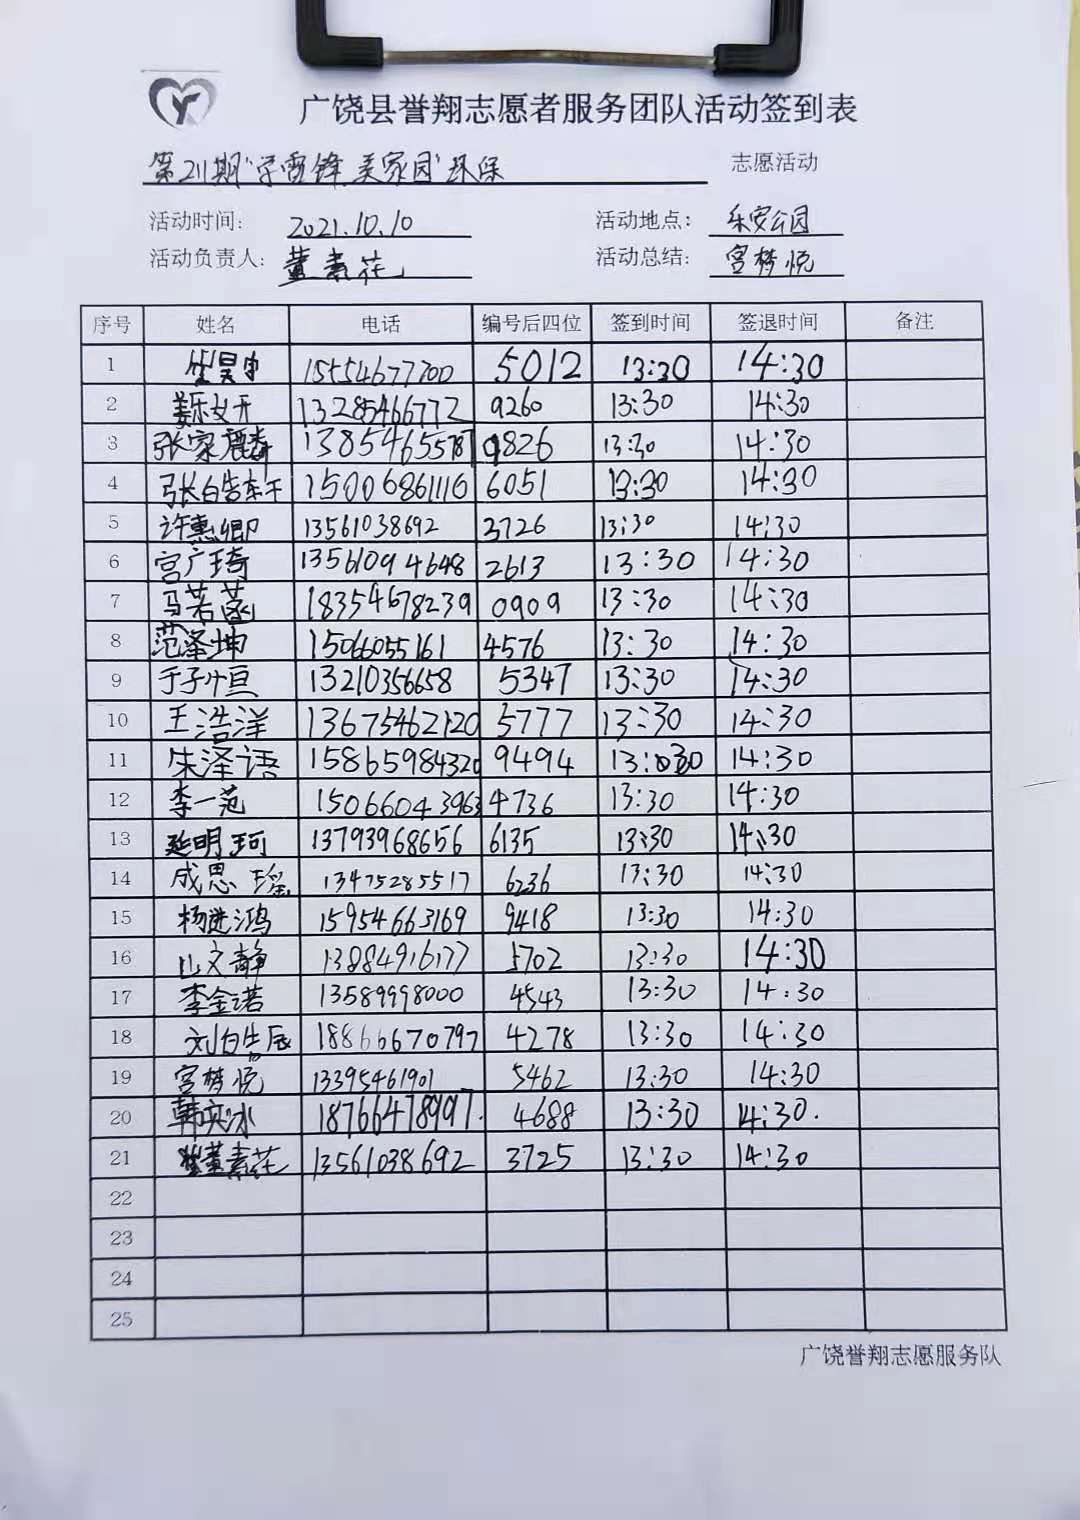 广饶县誉翔志愿者服务团队活动签到表
第211期"学雷锋 美家园"环保 志愿活动
活动时间: 2021.10.10 活动地点: 乐安公园
活动负责人: 董素花 活动总结: 宫梦悦
序号 姓名 电话 编号后四位 签到时间 签退时间 备注
1 15554677700 5012 13:30 14:30
2 姜乐文开 13285466772 9260 13:30 14:30
3 张家麟 13854655787 9826 13:30 14:30
4 张皓东 15006861116 6051 13:30 14:30
5 许惠卿 13561038692 3726 13:30 14:30
6 宫广琦 13561094648 2613 13:30 14:30
7 马若菡 18354678239 0909 13:30 14:30
8 范泽坤 15066055161 4576 13:30 14:30
9 于子恒 13210356658 5347 13:30 14:30
10 王浩洋 13675462120 5777 13:30 14:30
11 朱泽语 15865984320 9494 13:30 14:30
12 李一范 15066043963 4736 13:30 14:30
13 延明珂 13793968656 6135 13:30 14:30
14 成思瑶 13475285517 6236 13:30 14:30
15 杨进鸿 15954663169 9418 13:30 14:30
16 山文静 13884916177 5702 13:30 14:30
17 李金诺 13589998000 4543 13:30 14:30
18 刘皓辰 18866670797 4278 13:30 14:30
19 宫梦悦 13395461901 5462 13:30 14:30
20 韩冰 18766478997. 4688 13:30 14:30.
21 董素花 13561038692 3725 13:30 14:30
22
23
24
25
广饶誉翔志愿服务队